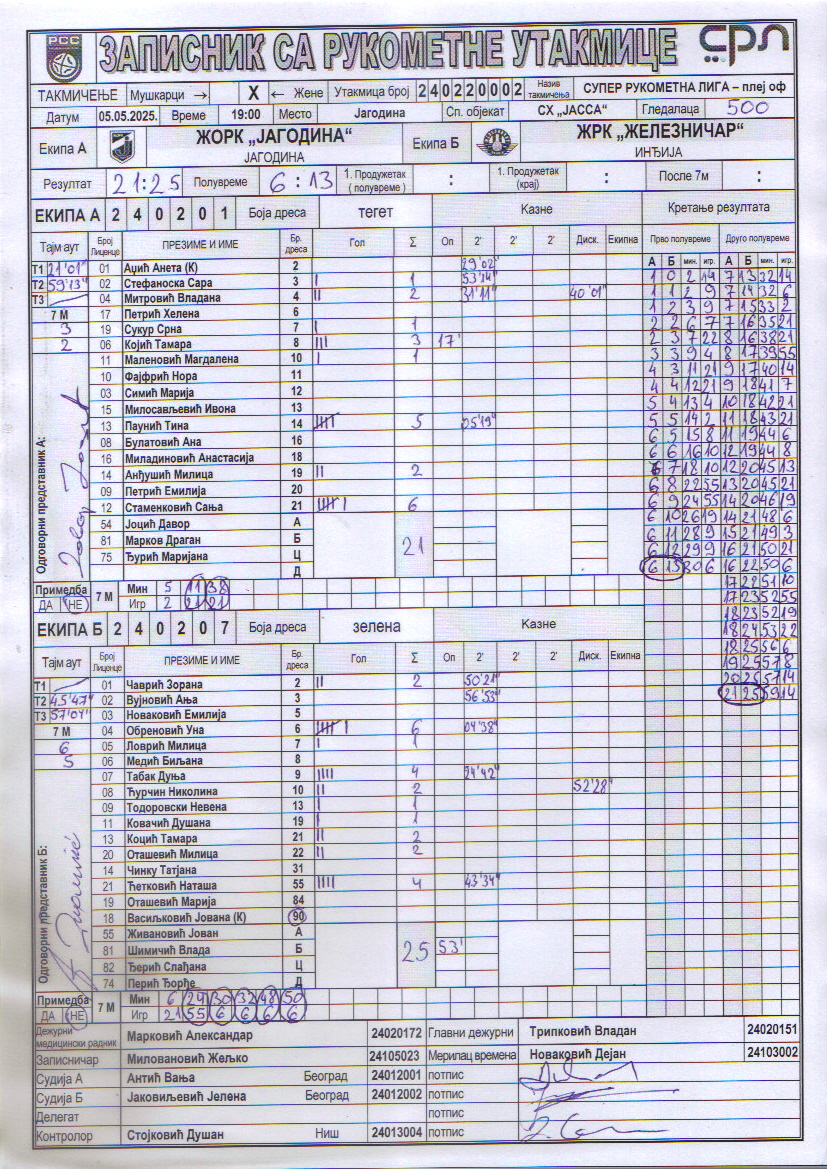 РСС
ЗАПИСНИК СА РУКОМЕТНЕ УТАКМИЦЕ
СРЛ
ТАКМИЧЕЊЕ Мушкарци → X ← Жене Утакмица број 2 4 0 2 2 0 0 0 2 Назив такмичења СУПЕР РУКОМЕТНА ЛИГА – плеј оф
Датум 05.05.2025. Време 19:00 Место Јагодина Сп. објекат СХ „ЈАССА“ Гледалаца 500
Екипа А ЖОРК „ЈАГОДИНА“ Екипа Б ЖРК „ЖЕЛЕЗНИЧАР“
ЈАГОДИНА ИНЂИЈА
Резултат 21:25 Полувреме 6:13 1. Продужетак ( полувреме ) : 1. Продужетак (крај) : После 7м :
ЕКИПА А 2 4 0 2 0 1 Боја дреса тегет Казне Кретање резултата
Тајм аут Број Лиценце ПРЕЗИМЕ И ИМЕ Бр. дреса Гол Σ Оп 2' 2' 2' Диск. Екипна Прво полувреме Друго полувреме
А Б мин. игр. А Б мин. игр.
Т1 21'01" 01 Аџић Анета (К) 2 29'02" 1 0 2 14 7 13 32 14
Т2 59'13" 02 Стефаноска Сара 3 I 1 53'14" 1 1 2 9 7 14 32 6
Т3 04 Митровић Владана 4 II 2 31'11" 40'01" 1 2 3 9 7 15 33 2
7 М 17 Петрић Хелена 6 2 2 6 7 7 16 35 21
3 19 Сукур Срна 7 I 1 2 3 7 22 8 16 38 21
2 06 Којић Тамара 8 III 3 17' 3 3 9 4 8 17 39 55
11 Маленовић Магдалена 10 I 1 4 3 11 21 9 17 40 14
10 Фајфрић Нора 11 4 4 12 21 9 18 41 7
03 Симић Марија 12 5 4 13 4 10 18 42 21
15 Милосављевић Ивона 13 5 5 14 2 11 18 43 21
13 Паунић Тина 14 IIIII 5 05'19" 6 5 15 8 11 19 44 6
08 Булатовић Ана 16 6 6 16 10 12 19 44 8
16 Миладиновић Анастасија 18 6 7 18 10 12 20 45 13
14 Анђушић Милица 19 II 2 6 8 22 55 13 20 45 21
09 Петрић Емилија 20 6 9 24 55 14 20 46 19
12 Стаменковић Сања 21 IIIII I 6 6 10 26 19 14 21 48 6
54 Јоцић Давор А 6 11 28 9 15 21 49 3
81 Марков Драган Б 21 6 12 29 9 16 21 50 21
75 Ђурић Маријана Ц 6 13 30 6 16 22 50 6
Д 17 22 51 10
Одговорни представник А:
Примедба 7 М Мин 5 11 38 17 23 52 55
ДА НЕ Игр 2 21 21 18 23 52 19
ЕКИПА Б 2 4 0 2 0 7 Боја дреса зелена Казне 18 24 53 22
18 25 56 6
Тајм аут Број Лиценце ПРЕЗИМЕ И ИМЕ Бр. дреса Гол Σ Оп 2' 2' 2' Диск. Екипна 19 25 57 8
Т1 01 Чаврић Зорана 2 II 2 50'21" 20 25 57 14
Т2 45'47" 02 Вујновић Ања 3 56'53" 21 25 59 14
Т3 57'04" 03 Новаковић Емилија 5
7 М 04 Обреновић Уна 6 IIIII I 6 04'38"
6 05 Ловрић Милица 7 I 1
5 06 Медић Биљана 8
07 Табак Дуња 9 IIII 4 24'42"
08 Ћурчин Николина 10 II 2 52'28"
09 Тодоровски Невена 13 I 1
11 Ковачић Душана 19 I 1
13 Коцић Тамара 21 II 2
20 Оташевић Милица 22 II 2
14 Чинку Татјана 31
21 Ћетковић Наташа 55 IIII 4 43'34"
19 Оташевић Марија 84
18 Васиљковић Јована (К) 90
55 Живановић Јован А
81 Шимичић Влада Б 25 53'
82 Ђерић Слађана Ц
74 Перић Ђорђе Д
Одговорни представник Б:
Примедба 7 М Мин 6 24 30 32 48 50
ДА НЕ Игр 21 55 6 6 6 6
Дежурни медицински радник Марковић Александар 24020172 Главни дежурни Трипковић Владан 24020151
Записничар Миловановић Жељко 24105023 Мерилац времена Новаковић Дејан 24103002
Судија А Антић Вања Београд 24012001 потпис
Судија Б Јаковиљевић Јелена Београд 24012002 потпис
Делегат потпис
Контролор Стојковић Душан Ниш 24013004 потпис